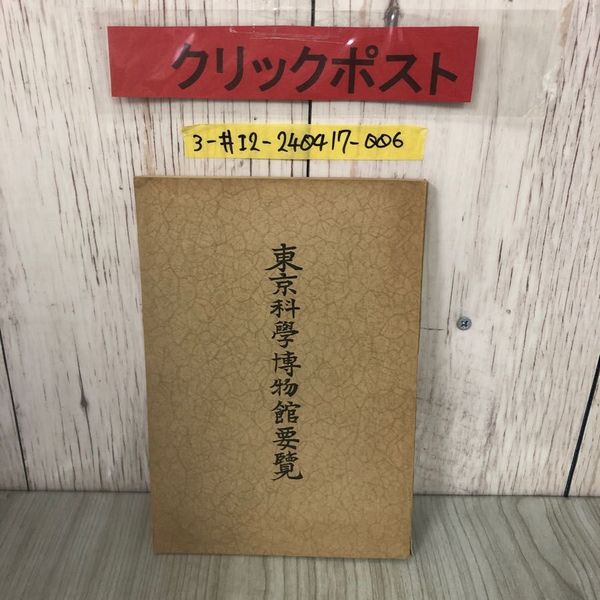 クリックポスト
3-#I2-240417-006
東京科學博物館要覽